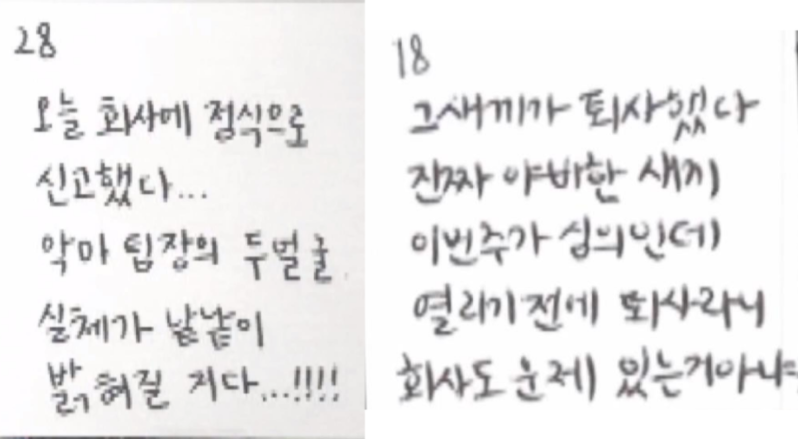 28
오늘 회사에 정식으로
신고했다...
악마 팀장의 두얼굴
실체가 낱낱이
밝혀질 지다...!!!!
18
그새끼가 퇴사했다
진짜 야비한 새끼
이번주가 심의인데
열리기전에 퇴사라니
회사도 문제 있는거아냐